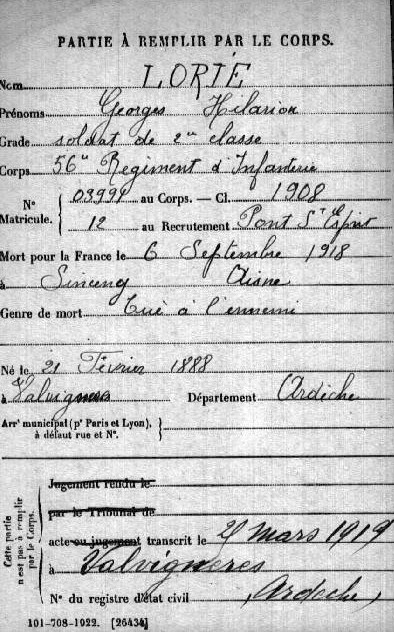 PARTIE À REMPLIR PAR LE CORPS.
Nom LORIÉ
Prénoms Georges Hilarion
Grade soldat de 2e classe
Corps 56e Régiment d'Infanterie
N° Matricule. { 09991 au Corps. — Cl. 1908
12 au Recrutement Pont St Esprit
Mort pour la France le 6 Septembre 1918
à Sinceny Aisne
Genre de mort Tué à l'ennemi
Né le 21 Février 1888
à Valvignères Département Ardèche
Arrt municipal (pr Paris et Lyon), à défaut rue et N°.
Cette partie n'est pas à remplir par le Corps.
Jugement rendu le
par le Tribunal de
acte ou jugement transcrit le mars 1919
à Valvignères
N° du registre d'état civil (Ardèche)
101-708-1922. [26434]